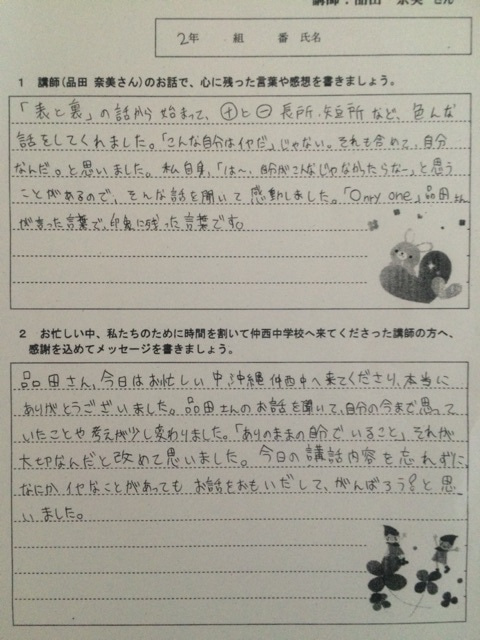 講師：品田 奈美 さん
2年 組 番 氏名
1 講師(品田 奈美さん)のお話で、心に残った言葉や感想を書きましょう。
「表と裏」の話から始まって、⊕と⊖ 長所・短所など、色んな
話をしてくれました。「こんな自分はイヤだ」じゃない。それも含めて、自分
なんだ。と思いました。私自身、「は～、自分がこんなじゃなかったらなー」と思う
ことがあるので、そんな話を聞いて感動しました。「Only one」品田さん
が言った言葉で、印象に残った言葉です。
2 お忙しい中、私たちのために時間を割いて仲西中学校へ来てくださった講師の方へ、
感謝を込めてメッセージを書きましょう。
品田さん、今日はお忙しい中沖縄仲西中へ来てくださり、本当に
ありがとうございました。品田さんのお話を聞いて、自分の今まで思って
いたことや考えが少し変わりました。「ありのままの自分でいること」それが
大切なんだと改めて思いました。今日の講話内容を忘れずに、
なにかイヤなことがあってもお話をおもいだして、がんばろう!と思
いました。